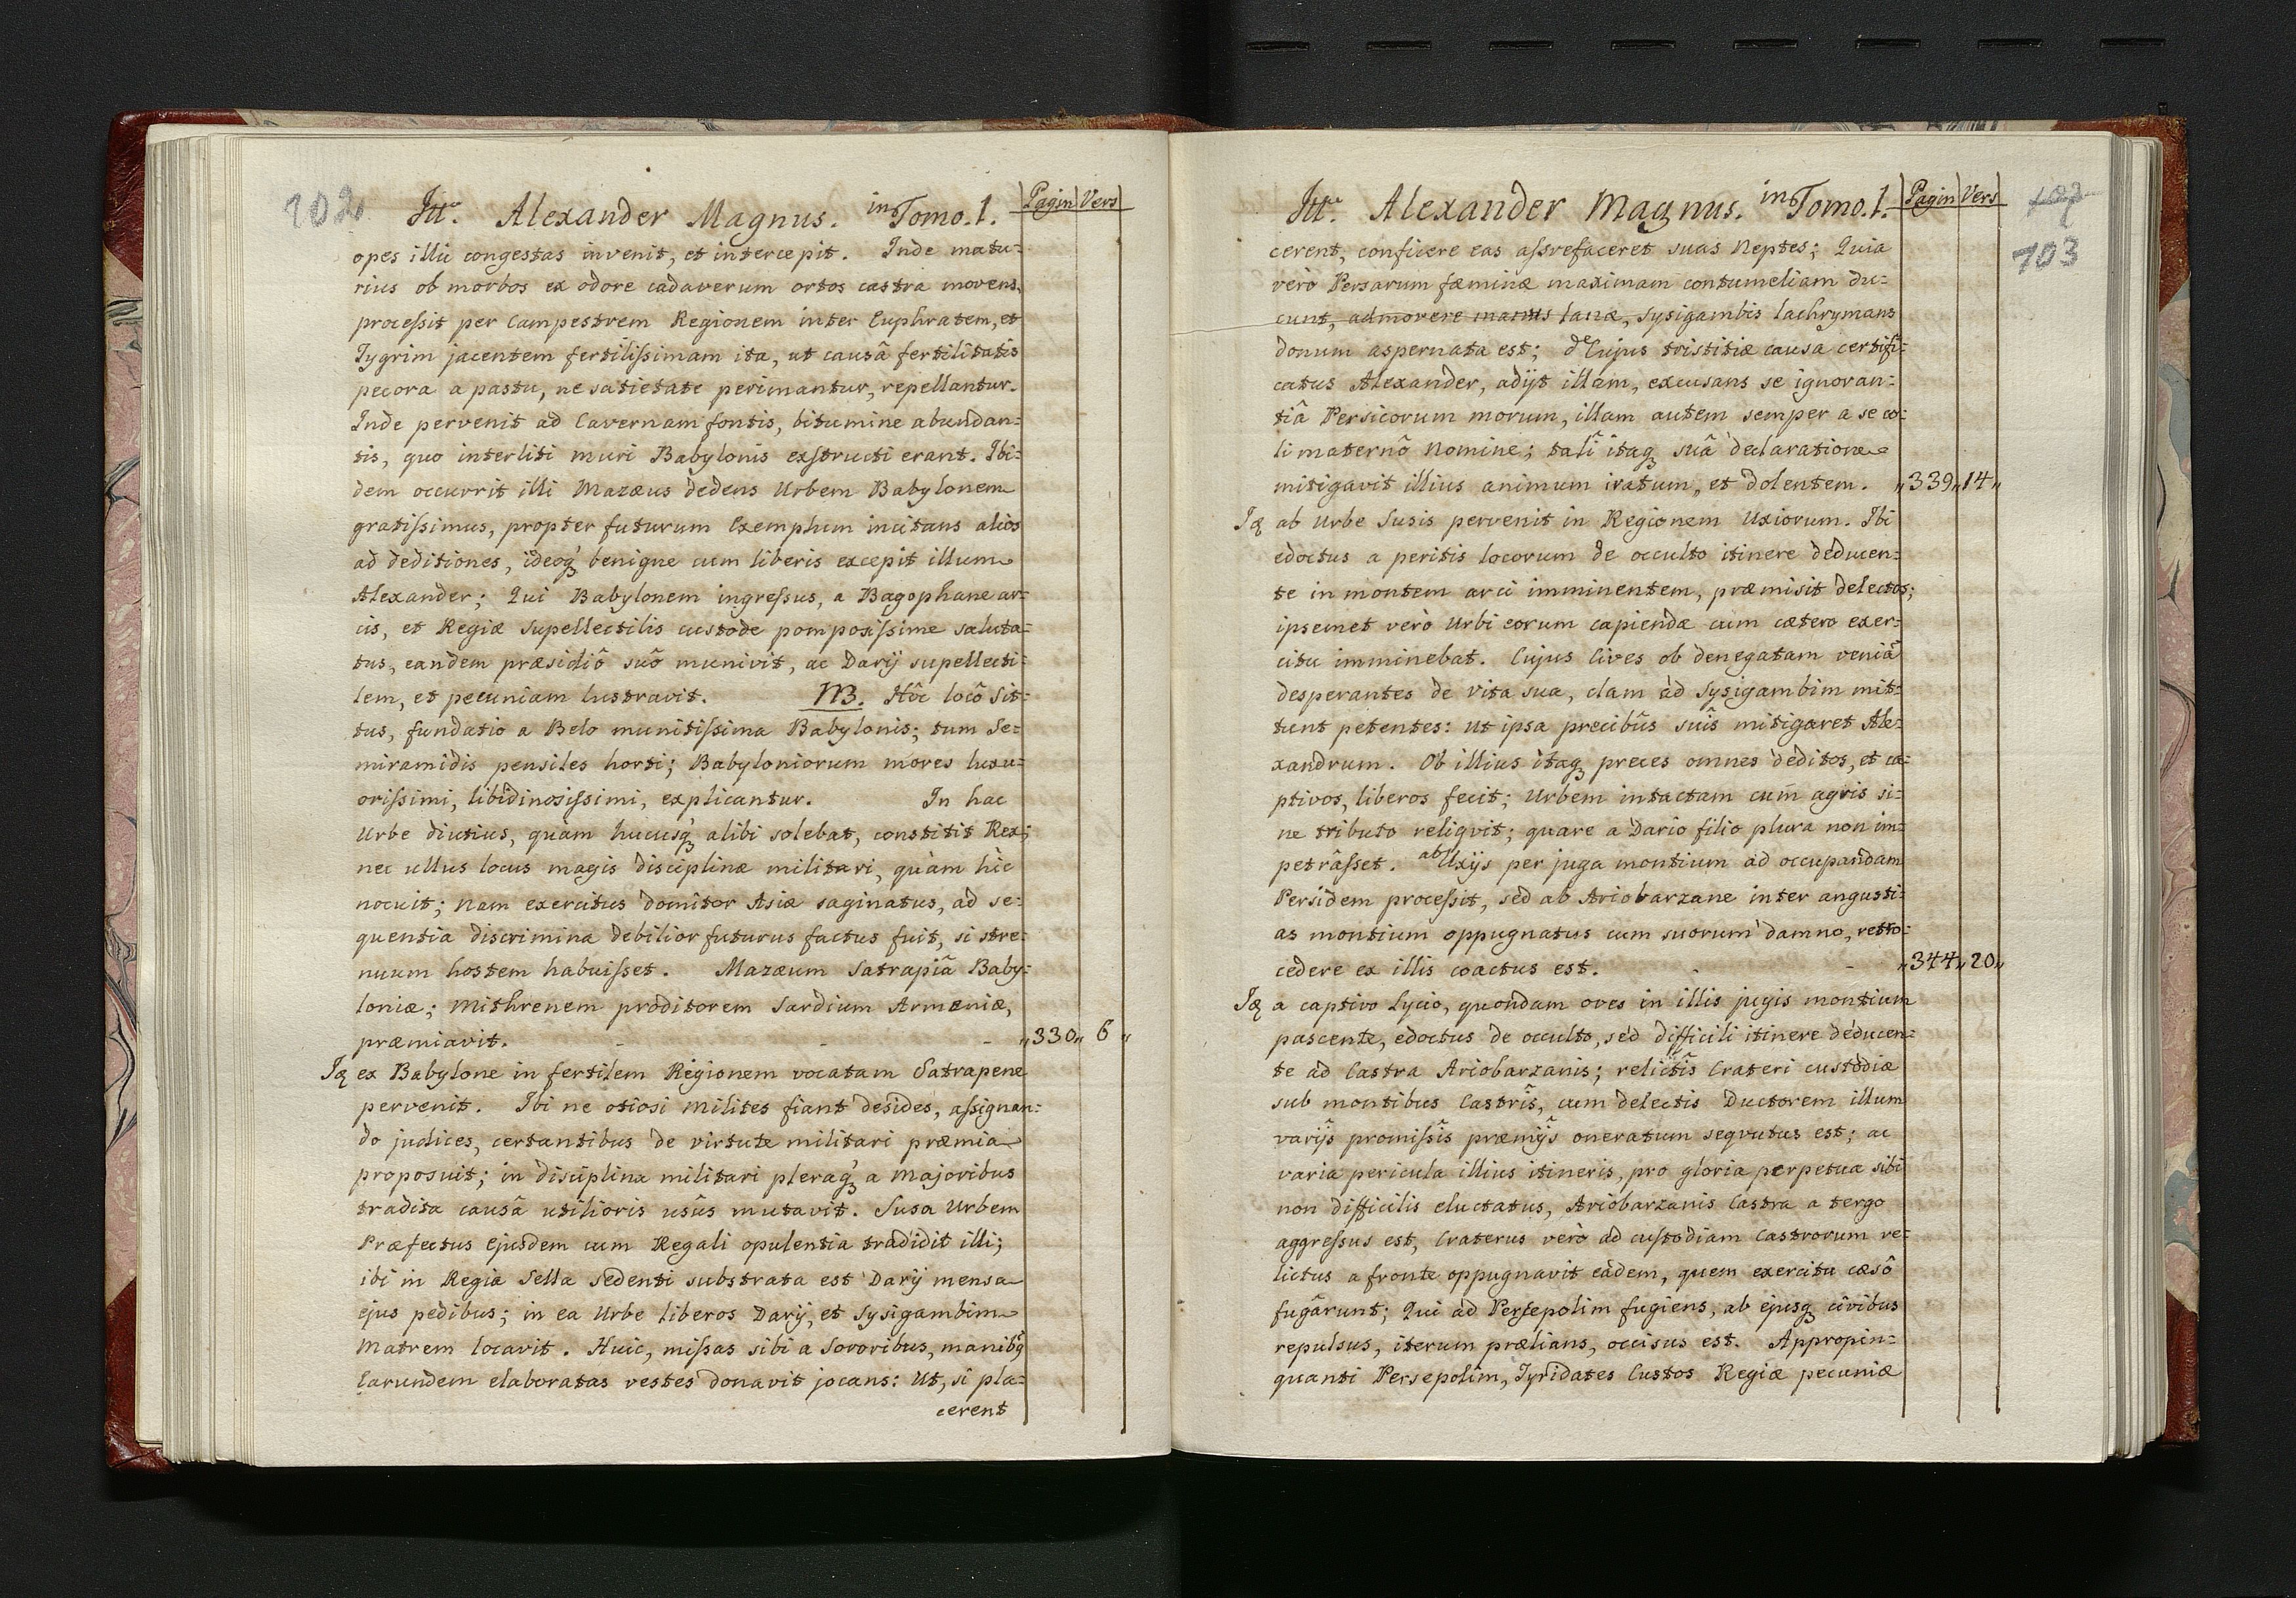 102
Itt. Alexander Magnus. in Tomo. 1. Pagin Vers
opes illic congestas invenit, et intercepit. Inde matu=
rius ob morbos ex odore cadaverum ortos castra movens,
processit per Campestrem Regionem inter Euphratem, et
Tygrim jacentem fertilissimam ita, ut causâ fertilitatis
pecora a pastu, ne satietate perimantur, repellantur.
Inde pervenit ad Cavernam fontis, bitumine abundan=
tis, quo interliti muri Babylonis exstructi erant. Ibi=
dem occurrit illi Mazæus dedens Urbem Babylonem
gratissimus, propter futurum Exemplum incitans alios
ad deditiones, ideoq́ benigne cum liberis excepit illum
Alexander; Qui Babylonem ingressus, a Bagophane ar=
cis, et Regiæ Supellectilis custode pomposissime saluta=
tus, eandem præsidiô suô munivit, ac Darij supellecti=
lem, et pecuniam lustravit. NB. Hôc locô Sit=
tus, fundatio a Belo munitissima Babylonis; tum Se=
miramidis pensiles horti; Babyloniorum mores luxu=
orissimi, libidinosissimi, explicantur. In hac
Urbe diutius, quam hucusq́ alibi solebat, constitit Rex;
nec ullus locus magis disciplinæ militari, quàm hîc
nocuit; Nam exercitus domitor Asiæ saginatus, ad se=
quentia discrimina debilior futurus factus fuit, si stre=
nuum hostem habuisset. Mazæum Satrapiâ Baby=
loniæ; Mithrenem proditorem Sardium Armeniæ,
præmiavit. - - - „330„ 6„
Iq ex Babylone in fertilem Regionem vocatam Satrapene
pervenit. Ibi ne otiosi Milites fiant desides, assignan=
do judices, certantibus de virtute militari præmia
proposuit; in disciplina militari pleraq́ a Majoribus
tradita causâ utilioris usûs mutavit. Susa Urbem
Præfectus Ejusdem cum Regali opulentia tradidit illi;
ibi in Regia Sella Sedenti substrata est Darij mensa
ejus pedibus; in ea Urbe liberos Darij, et Sysigambim
Matrem locavit. Huic, missas sibi a Sororibus, manibq́
Earundem elaboratas vestes donavit jocans: Ut, si pla=
cerent
Itt. Alexander Magnus. in Tomo. 1. Pagin Vers
103
cerent, conficere eas assvefaceret suas Neptes; Quia
verò Persarum fæminæ maximam contumeliam du=
cunt, admovere manus lanæ, Sysigambis lachrymans
donum aspernata est; de Cujus tristitiæ causa certifi=
catus Alexander, adijt illam, excusans se ignoran=
tiâ Persicorum morum, illam autem semper a se co=
li maternô Nomine; talî itaq suâ declaratione
mitigavit illius animum iratum, et dolentem. „339„14„
Iq ab Urbe Susis pervenit in Regionem Uxiorum. Ibi
edoctus a peritis locorum de occulto itinere deducen=
te in montem arci imminentem, præmisit delectos;
ipsemet verò Urbi eorum capiendæ cum cætero exer=
citu imminebat. Cujus Cives ob denegatam veniã
desperantes de vita sua, clam ad Sysigambim mit=
tunt petentes: ut ipsa precibûs suîs mitigaret Ale=
xandrum. Ob illius itaq preces omnes deditos, et ca=
ptivos, liberos fecit; Urbem intactam cum agris si=
ne tributo reliqvit; quare a Dario filio plura non im=
petrâsset. ab Uxijs per juga montium ad occupandam
Persidem processit, sed ab Ariobarzane inter angusti=
as montium oppugnatus cum suorum damno, retro=
cedere ex illis coactus est. - - „344„20„
Iq a captivo Lycio, quondam oves in illis jugis montium
pascente, edoctus de occulto, sed difficili itinere deducen=
te ad Castra Ariobarzanis; relictîs Crateri custodiæ
sub montibus Castrîs, cum delectis Ductorem illum
varijs promissîs præmijs oneratum seqvutus est; ac
varia pericula illius itineris, pro gloria perpetua sibi
non difficilis eluctatus, Ariobarzanis Castra a tergo
aggressus est, Craterus verò ad custodiam Castrorum re=
lictus a fronte oppugnavit eadem, quem exercitu cæsô
fugârunt; Qui ad Persepolim fugiens, ab ejusq civibus
repulsus, iterum prælians, occisus est. Appropin=
quanti Persepolim, Tyridates Custos Regiæ pecuniæ